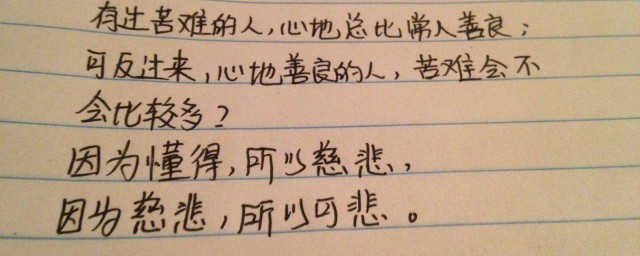 有过苦难的人,心地总比常人善良;
可反过来,心地善良的人,苦难会不
会比较多?
因为懂得,所以慈悲,
因为慈悲,所以可悲。